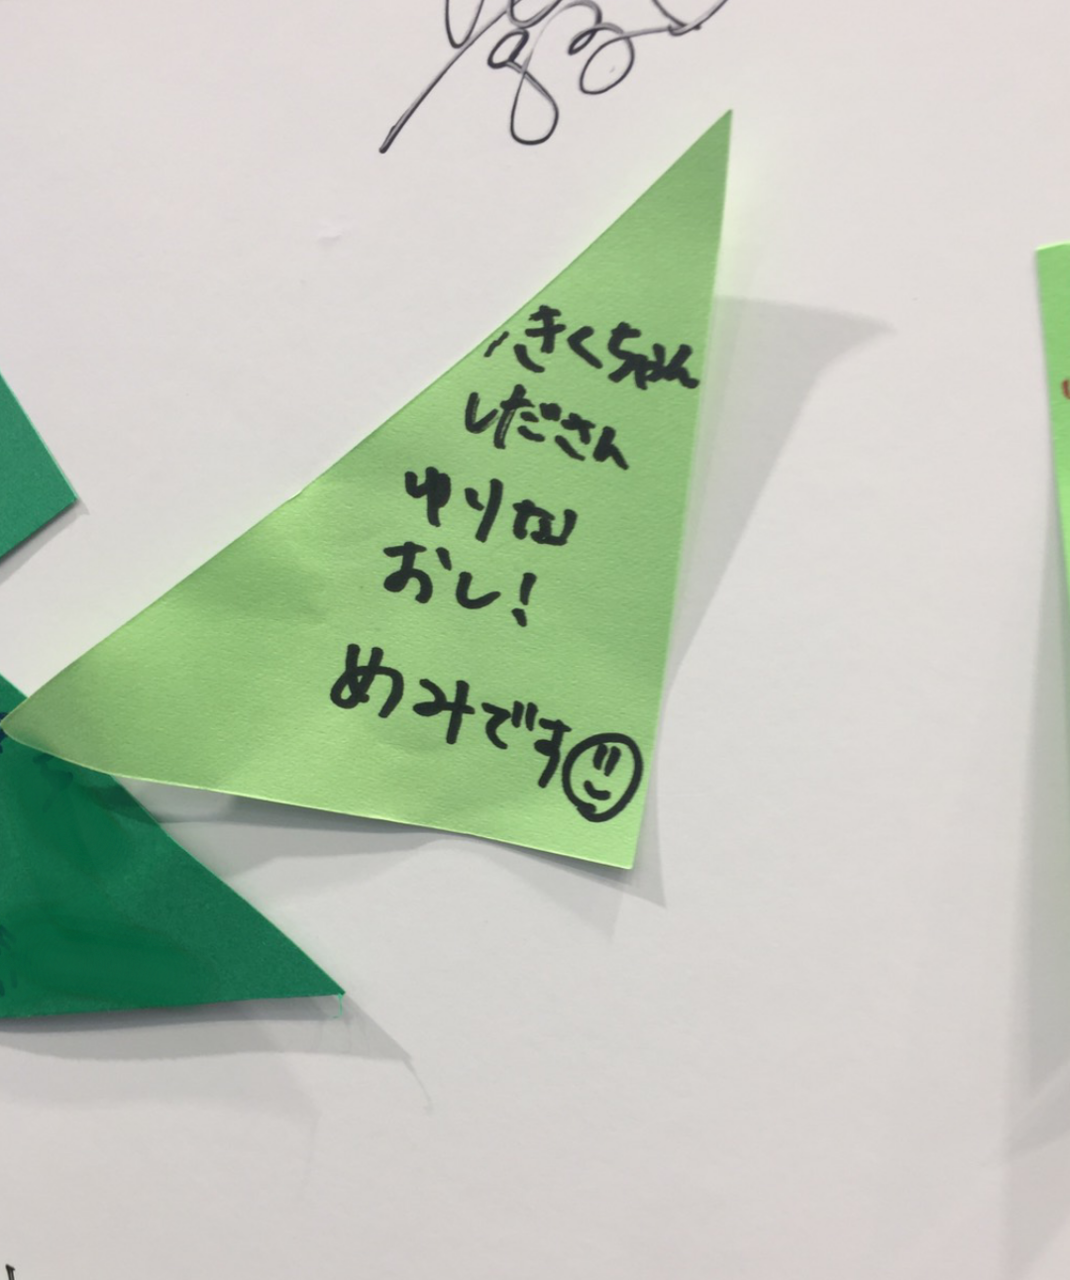 きくちゃん
しださん
ゆりな
おし!
めみです